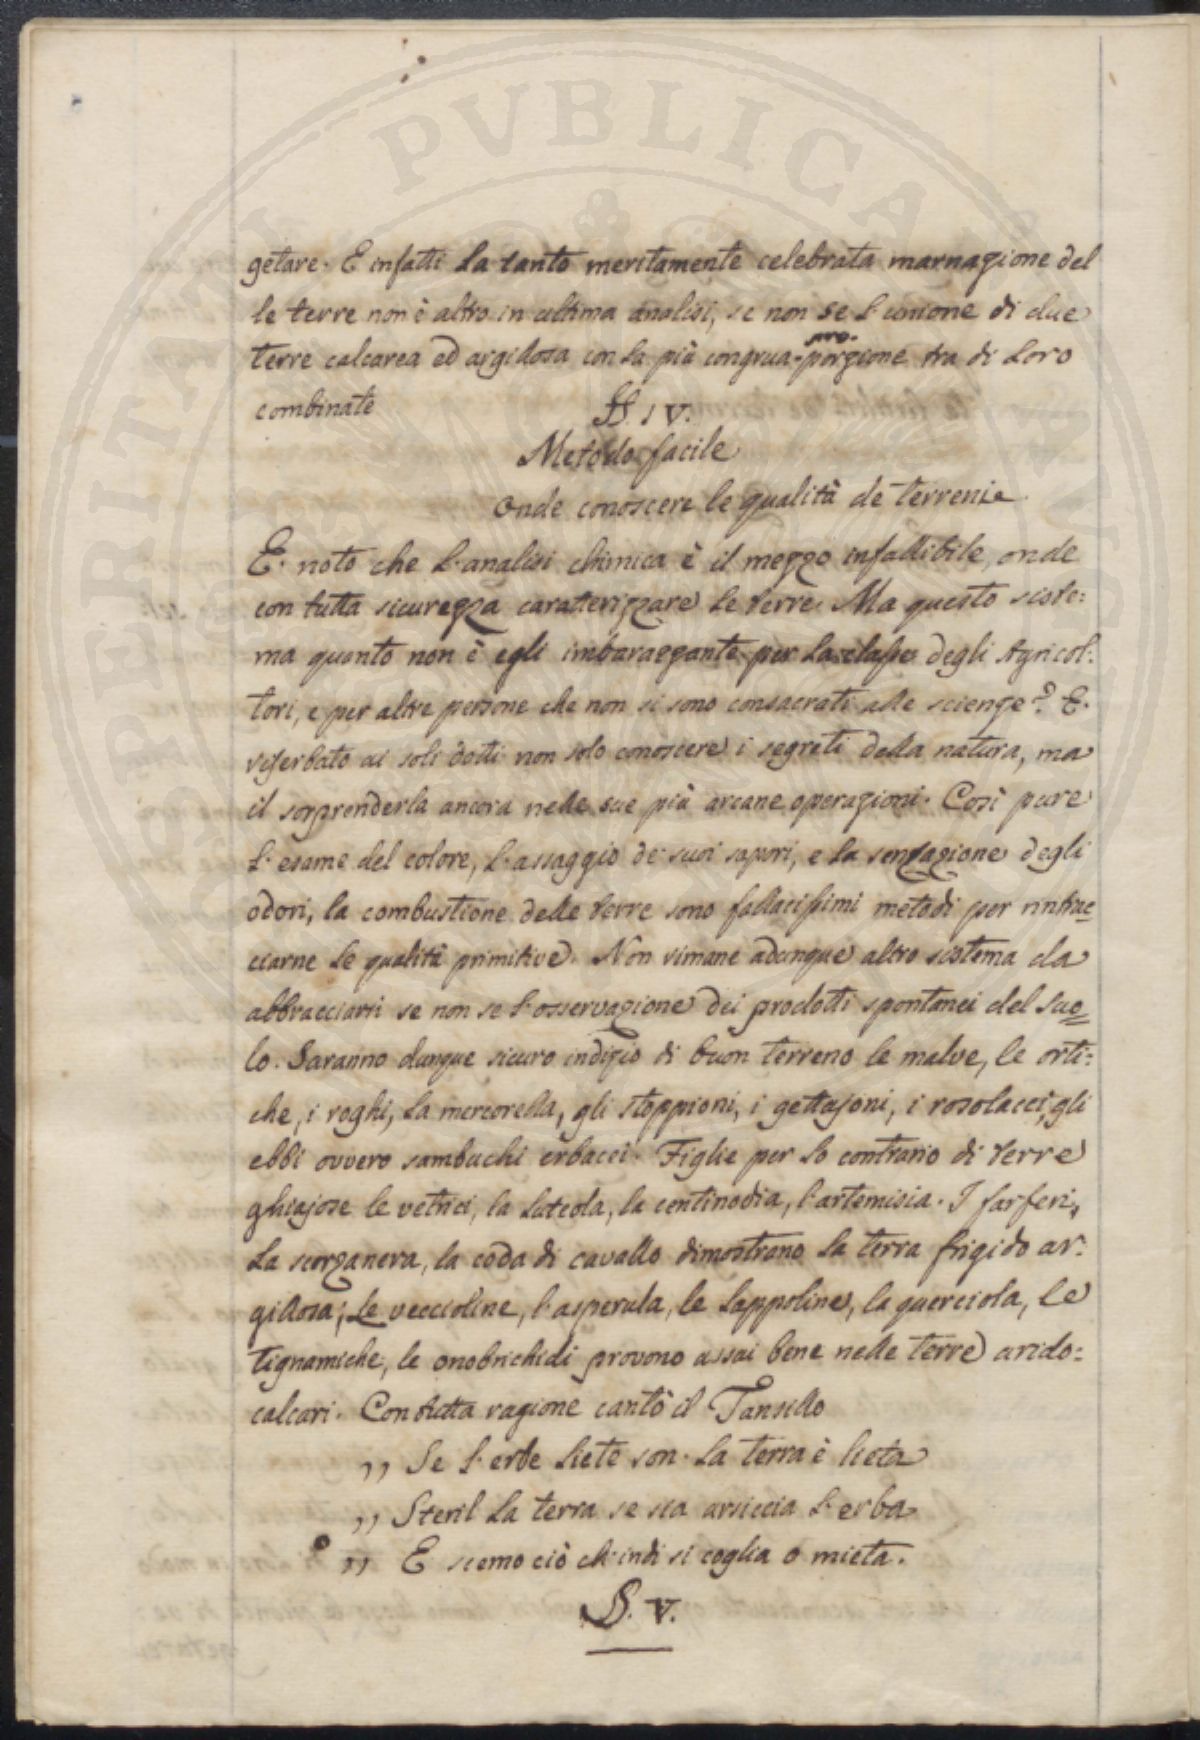 PROSPERITATI PVBLICAE AVGENDAE
getare. E infatti la tanto meritamente celebrata marnazione del
le terre non è altro in ultima analisi, se non se l'unione di due
terre calcarea ed argillosa con la più congrua proporzione tra di loro
combinate
§. IV.
Metodo facile
onde conoscere le qualità de terreni
E. noto che l'analisi chimica è il mezzo infallibile, onde
con tutta sicurezza caratterizzare le terre. Ma questo siste=
ma quanto non è egli imbarazzante per la classe degli Agricol=
tori, e per altre persone che non si sono consacrati alle scienze? E.
riserbato ai soli dotti non solo conoscere i segreti della natura, ma
il sorprenderla ancora nelle sue più arcane operazioni. Così pure
l'esame del colore, l'assaggio de' suoi sapori, e la sensazione degli
odori, la combustione delle terre sono fallacissimi metodi per rintrac=
ciarne le qualità primitive. Non rimane adunque altro sistema da
abbracciarsi se non se l'osservazione dei prodotti spontanei del suo=
lo. Saranno dunque sicuro indizio di buon terreno le malve, le orti=
che, i roghi, la mercorella, gli stoppioni, i gettajoni, i rosolacci, gli
ebbi ovvero sambuchi erbacei. Figlie per lo contrario di terre
ghiajose le vetrici, la luteola, la centinodia, l'artemisia. I farferi,
la scorzanera, la coda di cavallo dimostrano la terra frigido ar=
gillosa; Le veccioline, l'asperula, le lappoline, la querciola, le
tignamiche, le onobrichidi provono assai bene nelle terre arido=
calcari. Con tutta ragione cantò il Tansillo
,, Se l'erbe liete son. la terra è lieta
,, Steril la terra se sia arsiccia l'erba
,, E scemo ciò ch'indi si coglia o mieta.
§. V.